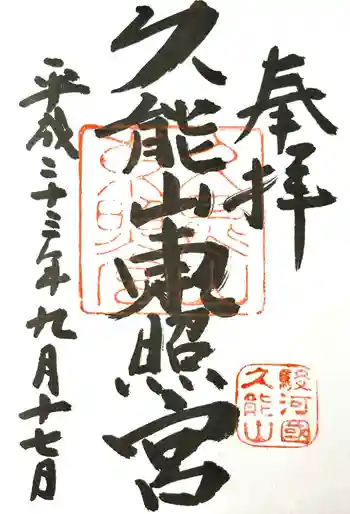 奉拝
久能山東照宮
平成二十三年九月十七日
駿河國
久能山